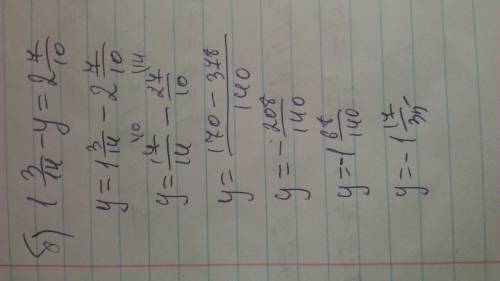 б) 1 3/14 - y = 2 7/10
y = 1 3/14 - 2 7/10
y = 17/14 - 27/10
y = 170 - 378/140
y = - 208/140
y = -1 68/140
y = -1 17/35